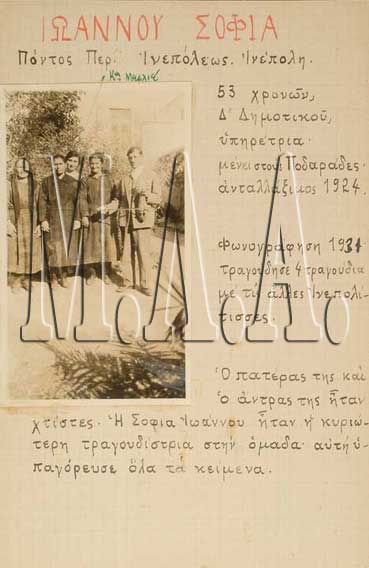 ΙΩΑΝΝΟΥ ΣΟΦΙΑ
Πόντος Περ. Ἰνεπόλεως. Ἰνέπολη.
53 χρονῶν,
Δ' Δημοτικοῦ,
ὑπηρέτρια.
μένει στους Ποδαράδες.
ἀνταλλάξιμος 1924.
Φωνογράφηση 1931
τραγούδησε 4 τραγούδια
μέ τίς ἄλλες Ἰνεπολί-
τισσες.
Ὁ πατέρας της καί
ὁ ἄντρας της ἦταν
χτίστες. Ἡ Σοφία Ἰωάννου ἦταν ἡ κυριώ-
τερη τραγουδίστρια στήν ὁμάδα αὐτή ὑ-
παγόρευσε ὅλα τά κείμενα.
Μ.Λ.Α.